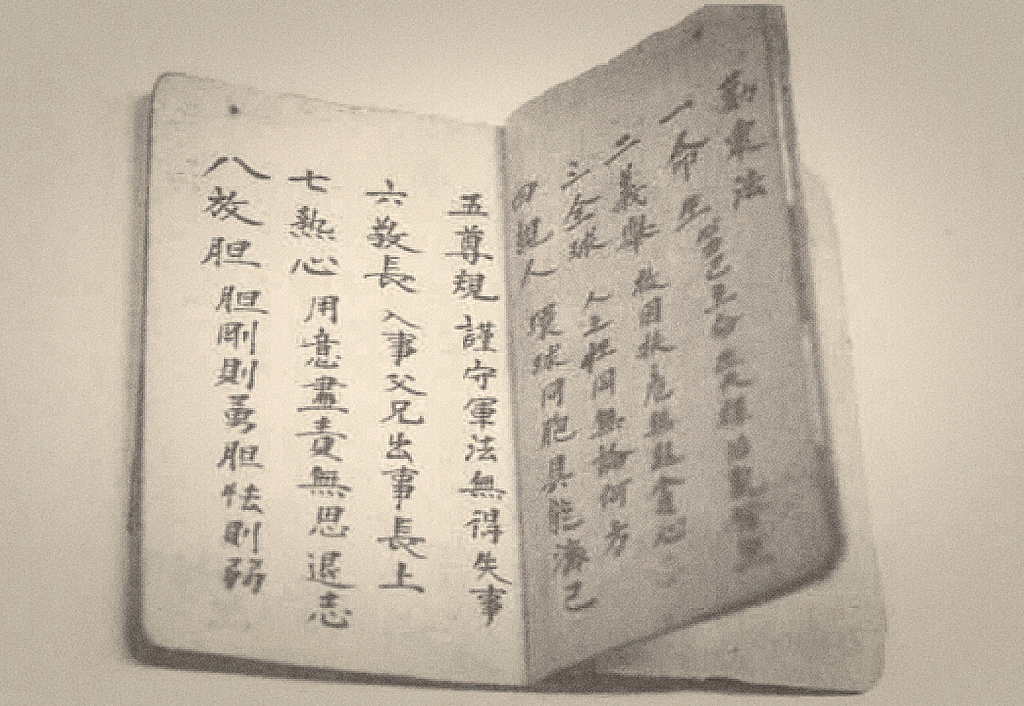 勤軍法
一命
二義舉 救國扶危無貪心
三全球 人工社同無論何方
四親人 環球同胞具能濟己
五尊規 謹守軍法無得失事
六敬長 入事父兄出事長上
七熱心 用意盡責無思退志
八放胆 胆剛則勇胆怯則弱